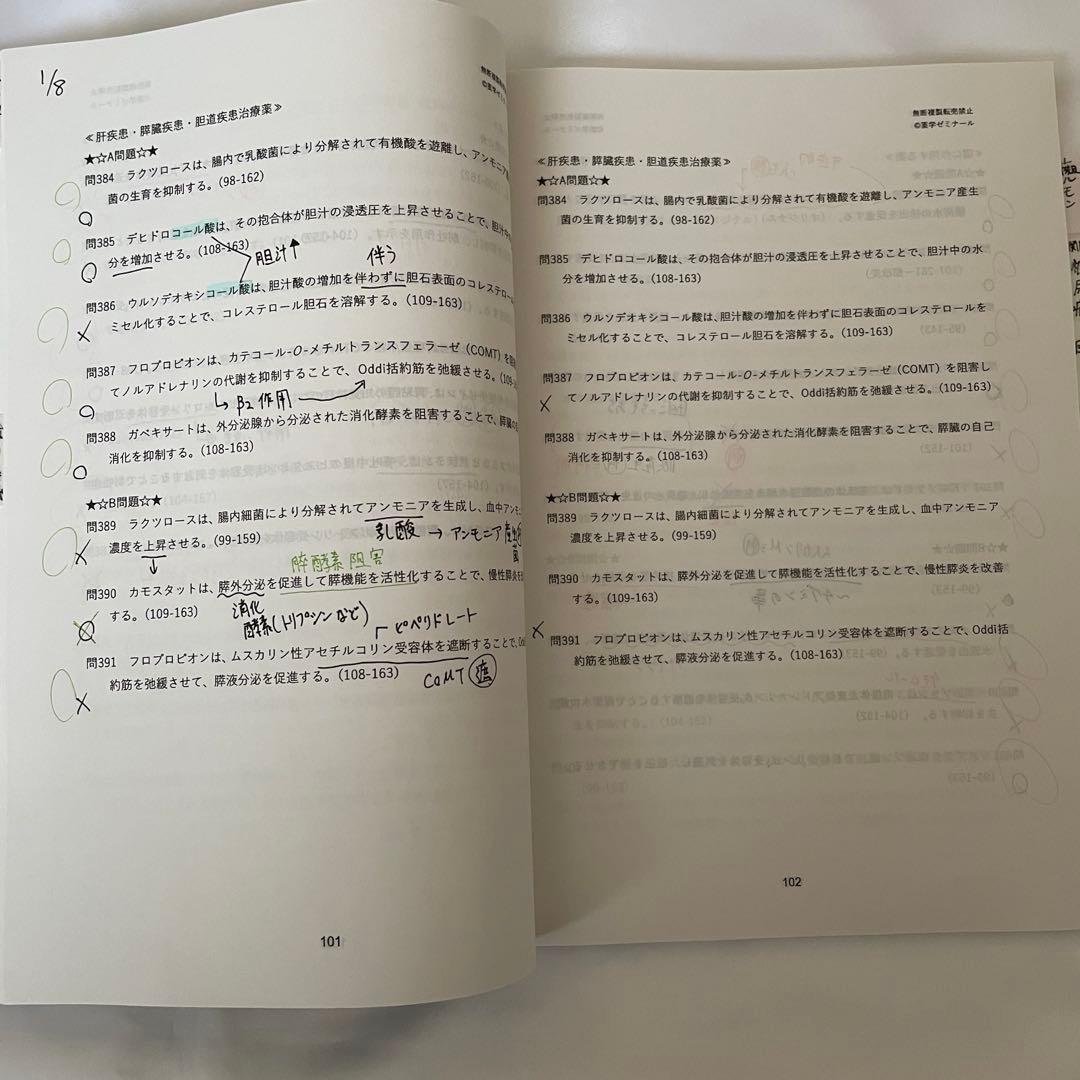 1/8
無断複製転売
©薬学ゼミ
≪肝疾患・膵臓疾患・胆道疾患治療薬≫
★☆A問題☆★
問384 ラクツロースは、腸内で乳酸菌により分解されて有機酸を遊離し、アンモニア
菌の生育を抑制する。(98-162)
問385 デヒドロコール酸は、その抱合体が胆汁の浸透圧を上昇させることで、胆汁中
分を増加させる。(108-163)
胆汁↑
伴う
問386 ウルソデオキシコール酸は、胆汁酸の増加を伴わずに胆石表面のコレステロー
ミセル化することで、コレステロール胆石を溶解する。(109-163)
×
問387 フロプロピオンは、カテコール-O-メチルトランスフェラーゼ(COMT)を阻
てノルアドレナリンの代謝を抑制することで、Oddi括約筋を弛緩させる。(109-
↳ β2作用
問388 ガベキサートは、外分泌腺から分泌された消化酵素を阻害することで、膵臓の
消化を抑制する。(108-163)
★☆B問題☆★
問389 ラクツロースは、腸内細菌により分解されてアンモニアを生成し、血中アンモ
濃度を上昇させる。(99-159)
×
↓
乳酸 → アンモニア産生菌
膵酵素阻害
問390 カモスタットは、膵外分泌を促進して膵機能を活性化することで、慢性膵炎を
する。(109-163)
消化
酵素(トリプシンなど)
ピペリドレート
問391 フロプロピオンは、ムスカリン性アセチルコリン受容体を遮断することで、Od
約筋を弛緩させて、膵液分泌を促進する。(108-163)
×
COMT 遮
101
無断複製転売禁止
©薬学ゼミナール
≪肝疾患・膵臓疾患・胆道疾患治療薬≫
★☆A問題☆★
問384 ラクツロースは、腸内で乳酸菌により分解されて有機酸を遊離し、アンモニア産生
菌の生育を抑制する。(98-162)
問385 デヒドロコール酸は、その抱合体が胆汁の浸透圧を上昇させることで、胆汁中の水
分を増加させる。(108-163)
問386 ウルソデオキシコール酸は、胆汁酸の増加を伴わずに胆石表面のコレステロールを
ミセル化することで、コレステロール胆石を溶解する。(109-163)
問387 フロプロピオンは、カテコール-O-メチルトランスフェラーゼ(COMT)を阻害し
× てノルアドレナリンの代謝を抑制することで、Oddi括約筋を弛緩させる。(109-163)
問388 ガベキサートは、外分泌腺から分泌された消化酵素を阻害することで、膵臓の自己
消化を抑制する。(108-163)
★☆B問題☆★
問389 ラクツロースは、腸内細菌により分解されてアンモニアを生成し、血中アンモニア
濃度を上昇させる。(99-159)
問390 カモスタットは、膵外分泌を促進して膵機能を活性化することで、慢性膵炎を改善
する。(109-163)
× 問391 フロプロピオンは、ムスカリン性アセチルコリン受容体を遮断することで、Oddi括
約筋を弛緩させて、膵液分泌を促進する。(108-163)
102